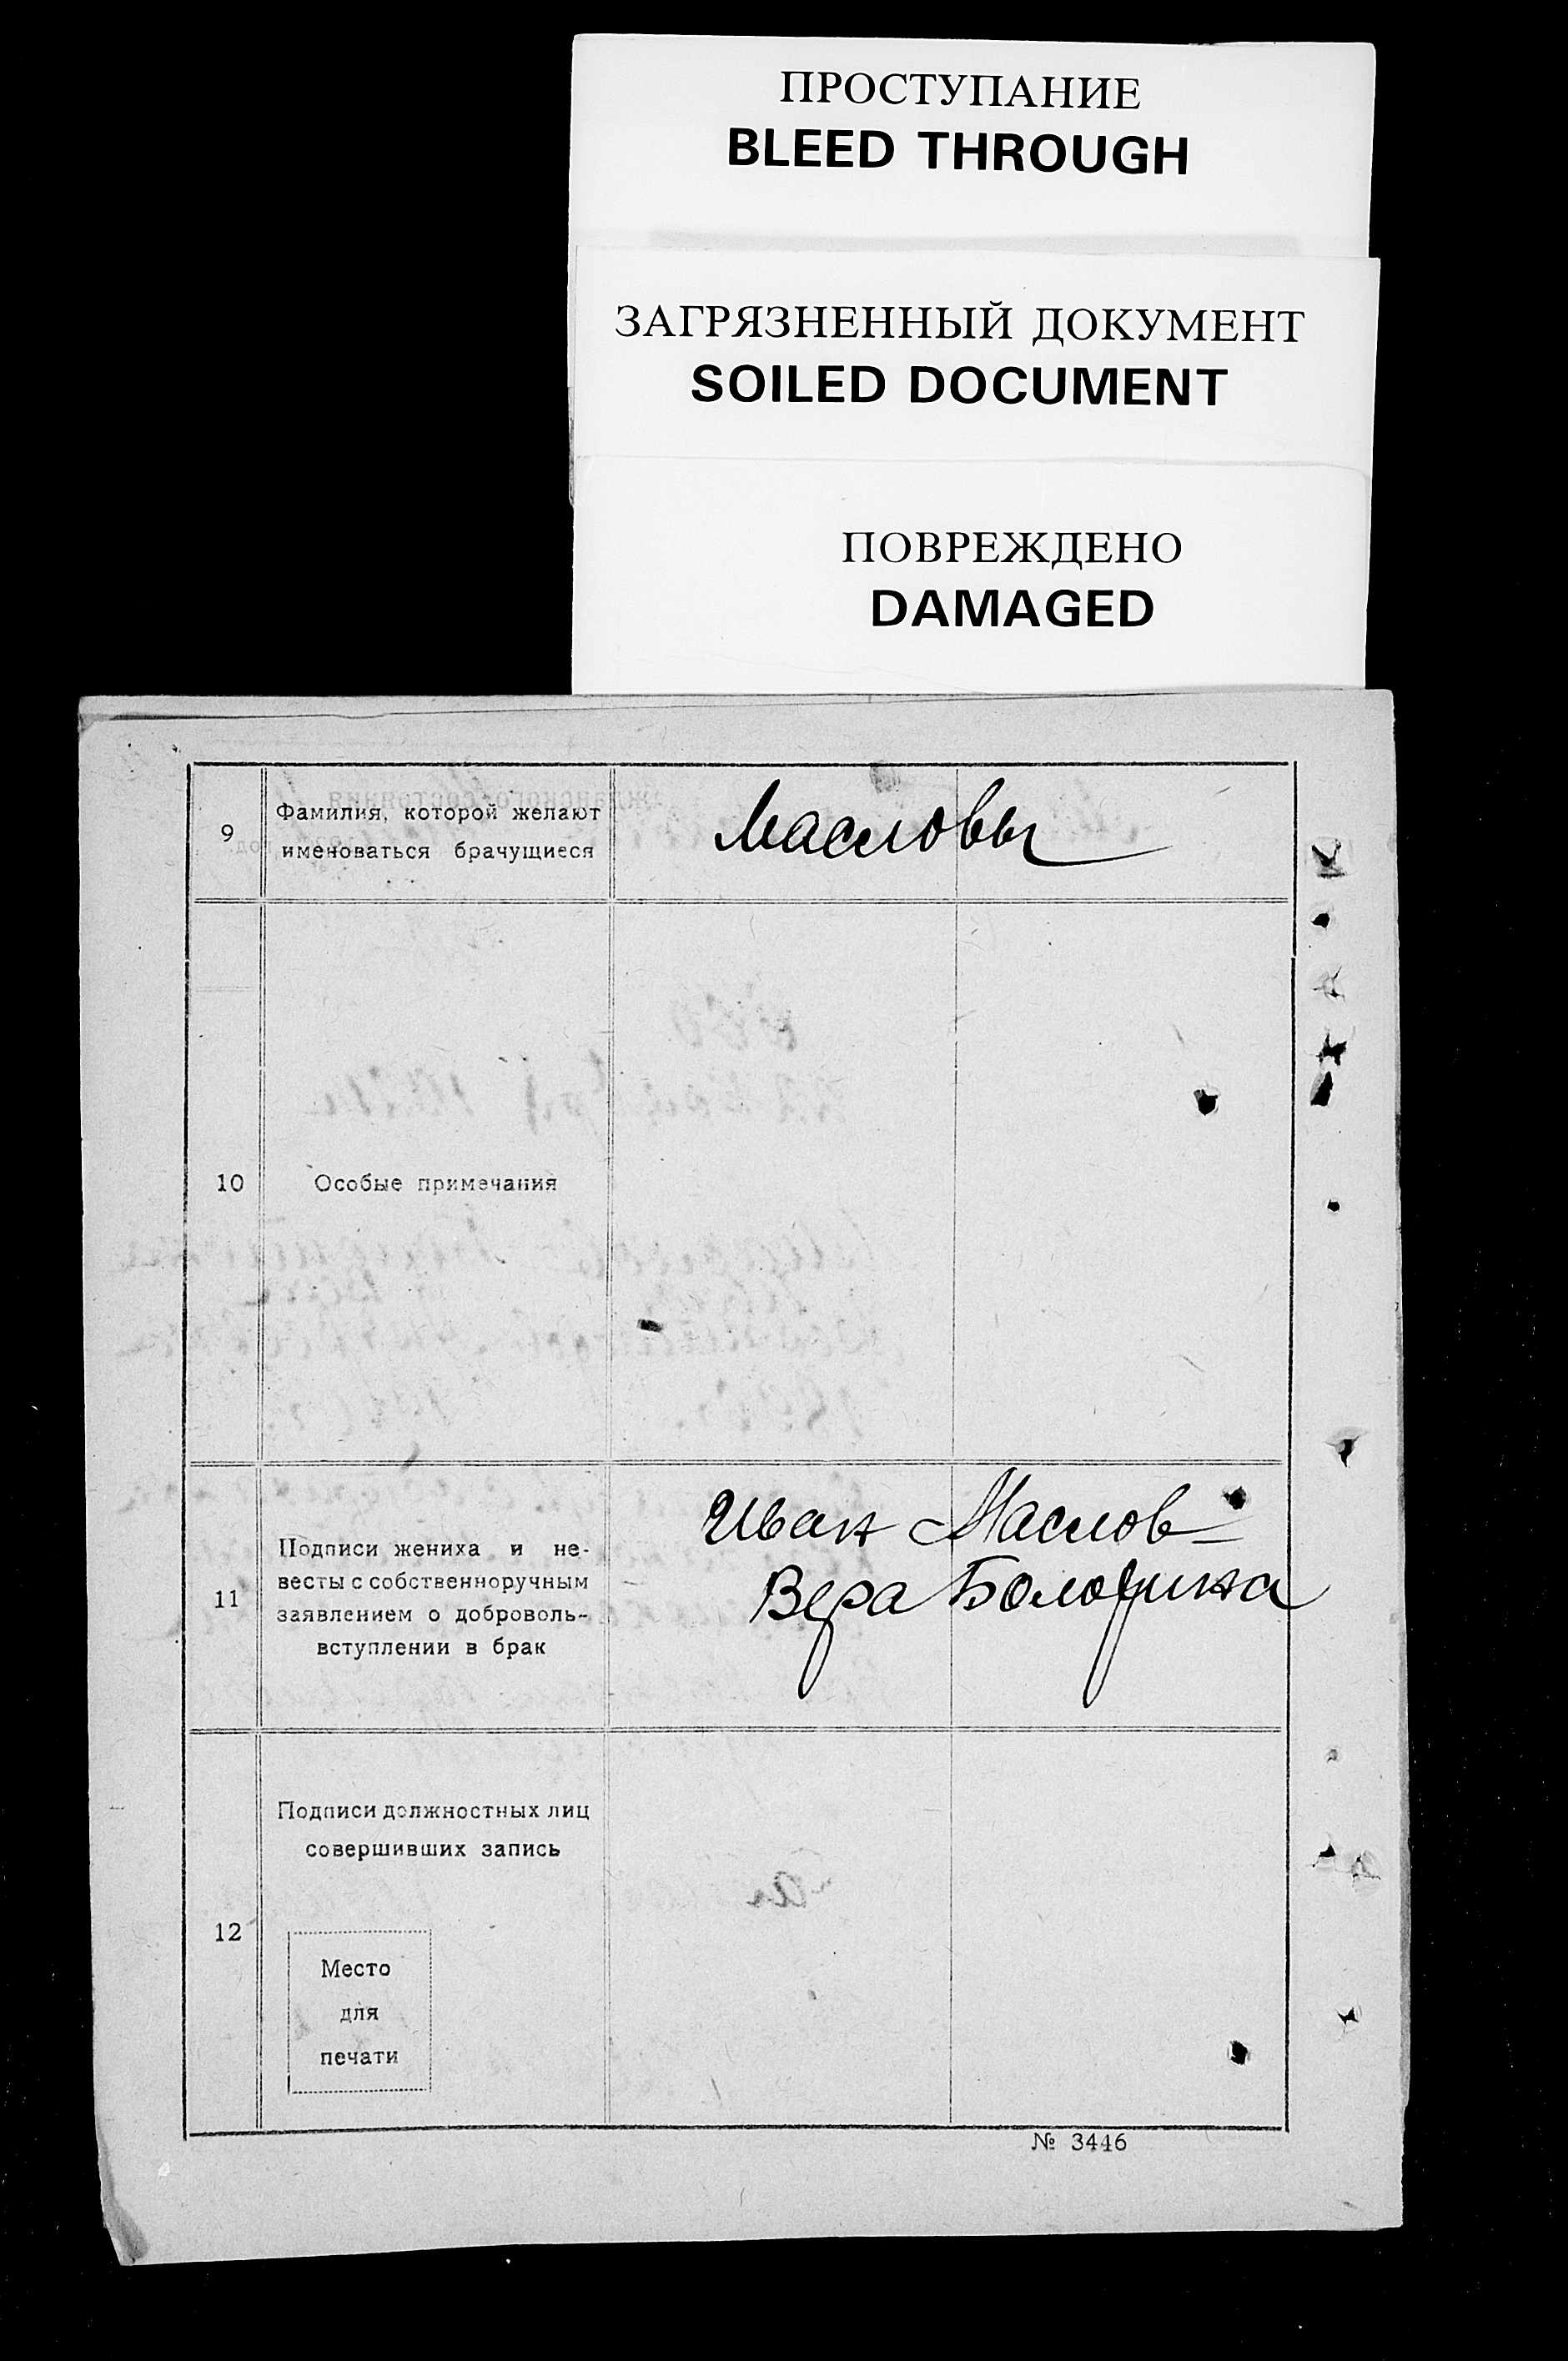 ПРОСТУПАНИЕ
BLEED THROUGH
ЗАГРЯЗНЕННЫЙ ДОКУМЕНТ
SOILED DOCUMENT
ПОВРЕЖДЕНО
DAMAGED
9
Фамилия, которой желают
именоваться брачущиеся
Масловы
10
Особые примечания
11
Подписи жениха и не-
весты с собственноручным
заявлением о доброволь-
вступлении в брак
Иван Маслов
Вера
12
Подписи должностных лиц
совершивших запись
Место
для
печати
№ 3446